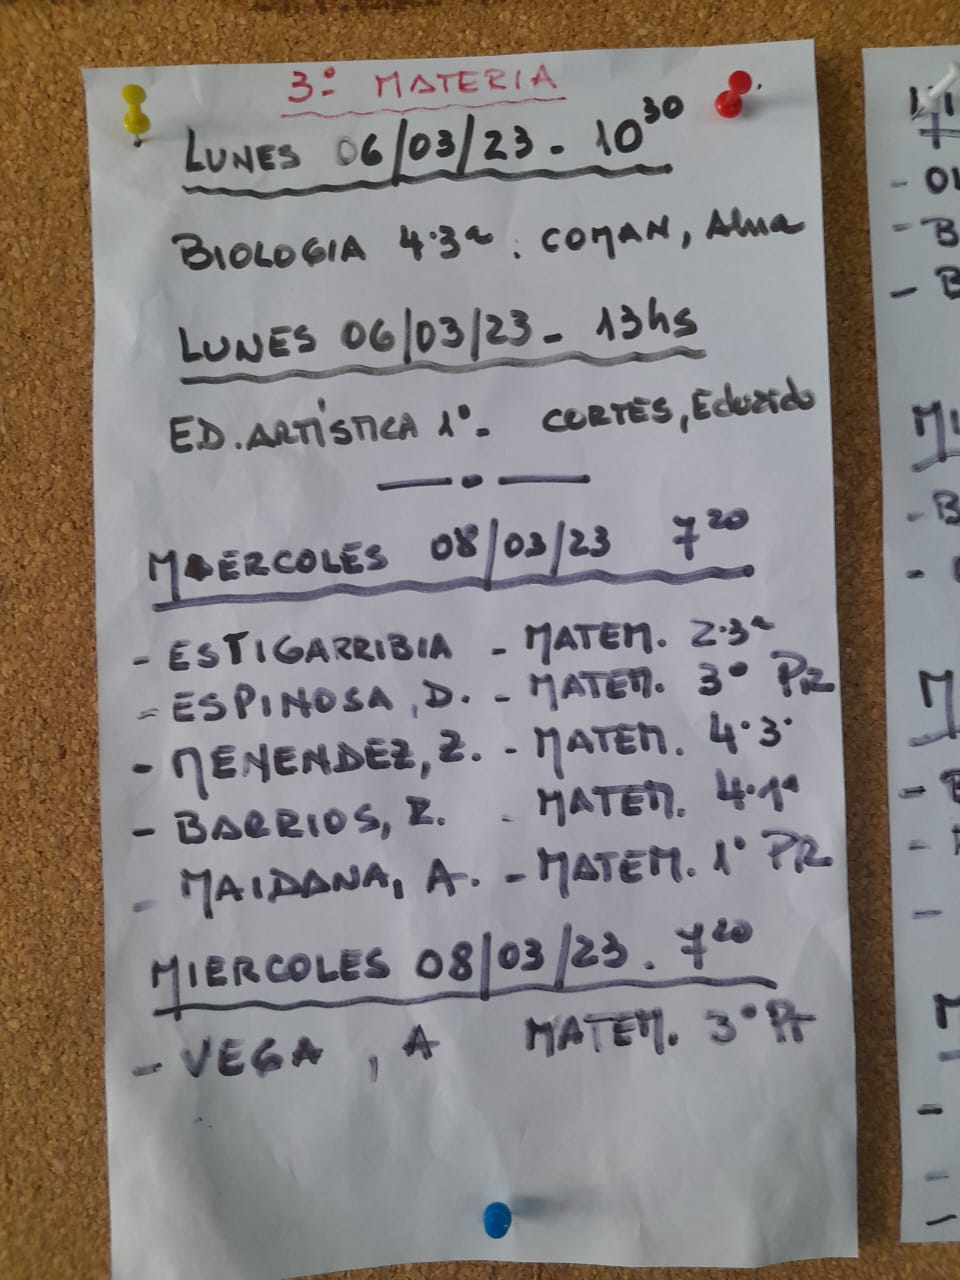 3º MATERIA
LUNES 06/03/23 - 10³⁰
BIOLOGIA 4·3ª : COMAN, Alma
LUNES 06/03/23 - 13hs
ED. ARTÍSTICA 1º - CORTES, Eduardo
MIERCOLES 08/03/23 7²⁰
- ESTIGARRIBIA - MATEM. 2·3ª
- ESPINOSA, D. - MATEM. 3º PR
- MENENDEZ, Z. - MATEM. 4·3ª
- BARRIOS, Z. - MATEM. 4·1ª
- MAIDANA, A. - MATEM. 1º PR
MIERCOLES 08/03/23 . 7²⁰
- VEGA , A MATEM. 3º PR